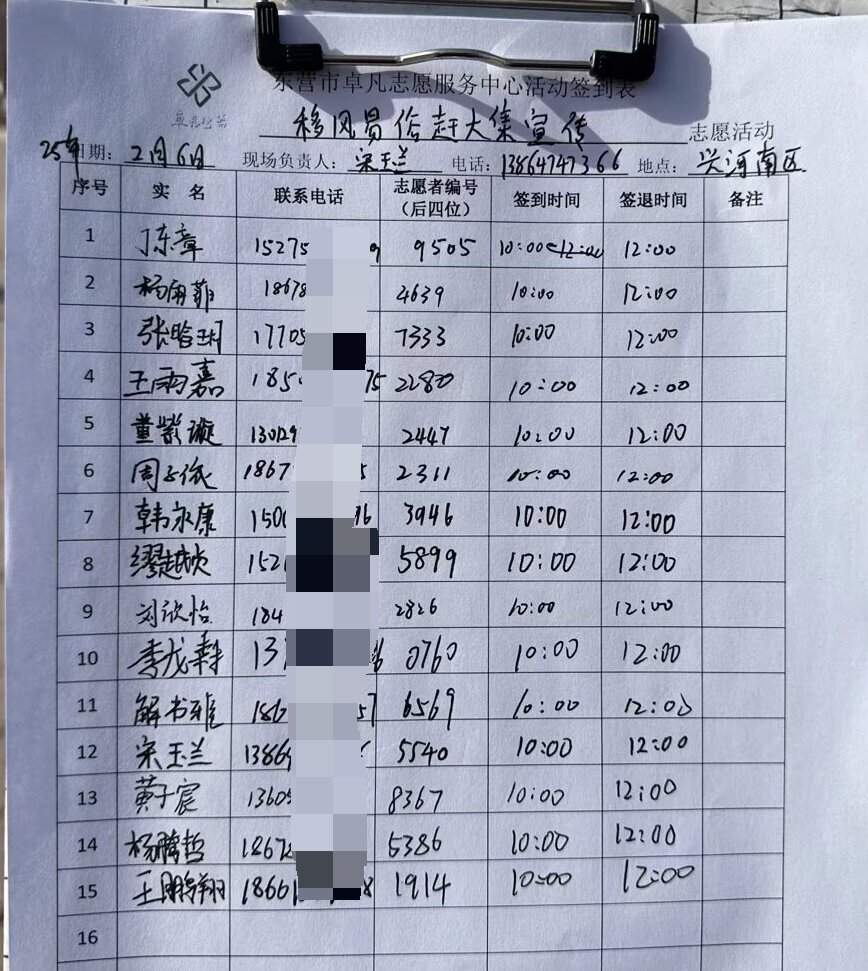 东营市卓凡志愿服务中心活动签到表
移风易俗赶大集宣传 志愿活动
25年 日期：2月6日 现场负责人：宋玉兰 电话：13864747366 地点：兴河南区
序号 实 名 联系电话 志愿者编号（后四位） 签到时间 签退时间 备注
1 丁东章 15275 9 9505 10:00 12:00
2 杨雨菲 18678 4639 10:00 12:00
3 张晗玥 17705 7333 10:00 12:00
4 王雨嘉 185 75 2280 10:00 12:00
5 董紫璇 13012 2447 10:00 12:00
6 周子依 1867 2311 10:00 12:00
7 韩永康 150 76 3946 10:00 12:00
8 缪越 152 5899 10:00 12:00
9 刘欣怡 184 2826 10:00 12:00
10 李龙 13 0760 10:00 12:00
11 解书雅 186 57 6569 10:00 12:00
12 宋玉兰 1386 5540 10:00 12:00
13 黄子宸 13605 8367 10:00 12:00
14 杨鹏哲 1867 5386 10:00 12:00
15 王鹏翔 1866 8 1914 10:00 12:00
16